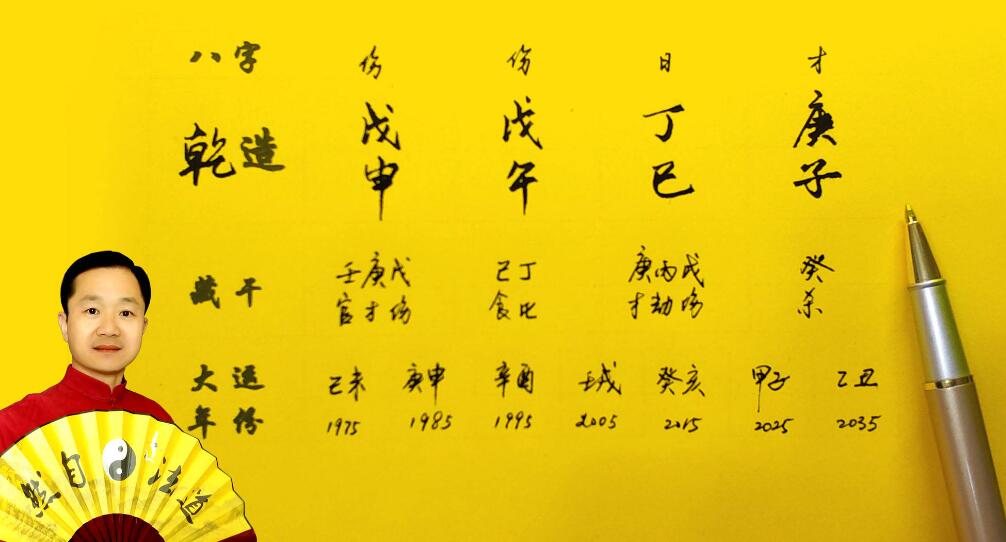 八字 伤 伤 日 才
乾造 戊 戊 丁 庚
申 午 巳 子
藏干 壬庚戊 己丁 庚丙戊 癸
官才伤 食比 才劫伤 杀
大运 己未 庚申 辛酉 壬戌 癸亥 甲子 乙丑
年份 1975 1985 1995 2005 2015 2025 2035
然自法道